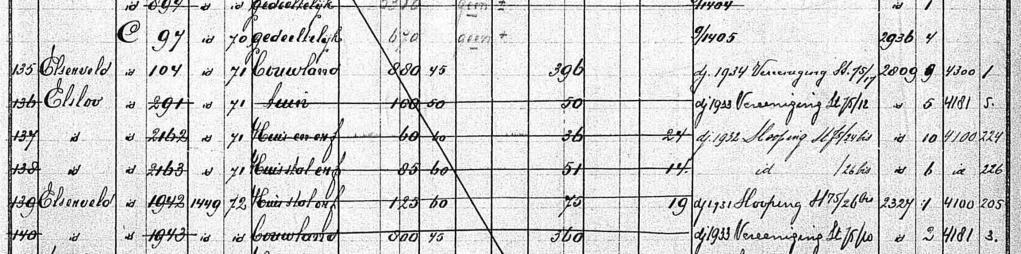 id 694 id 70 gedeeltelijk geen + 9/1404 id 1
C 97 id 70 gedeeltelijk 670 geen + 9/1405 2936 4
135 Elsenveld id 104 id 71 Bouwland 880 45 396 dj. 1934 Vereeniging St. 75/17 2809 9 4300 1
136 Elsloo id 291 id 71 tuin 100 50 50 dj 1933 Vereeniging St 75/12 id 5 4181 5.
137 id id 2162 id 71 Huis en erf 60 60 36 24 dj. 1932 Slooping St 75/24bis id 10 4100 224
138 id id 2163 id 71 Huis stal erf 85 60 51 14. id /26bis id 6 id 226
139 Elsenveld id 1942 1449 72 Huis stal erf 125 60 75 19 dj 1931 Slooping St 75/26bis 2327 1 4100 205
140 id id 1943 id id Bouwland 800 45 360 dj 1933 Vereeniging St 75/10 id 2 4181 3.